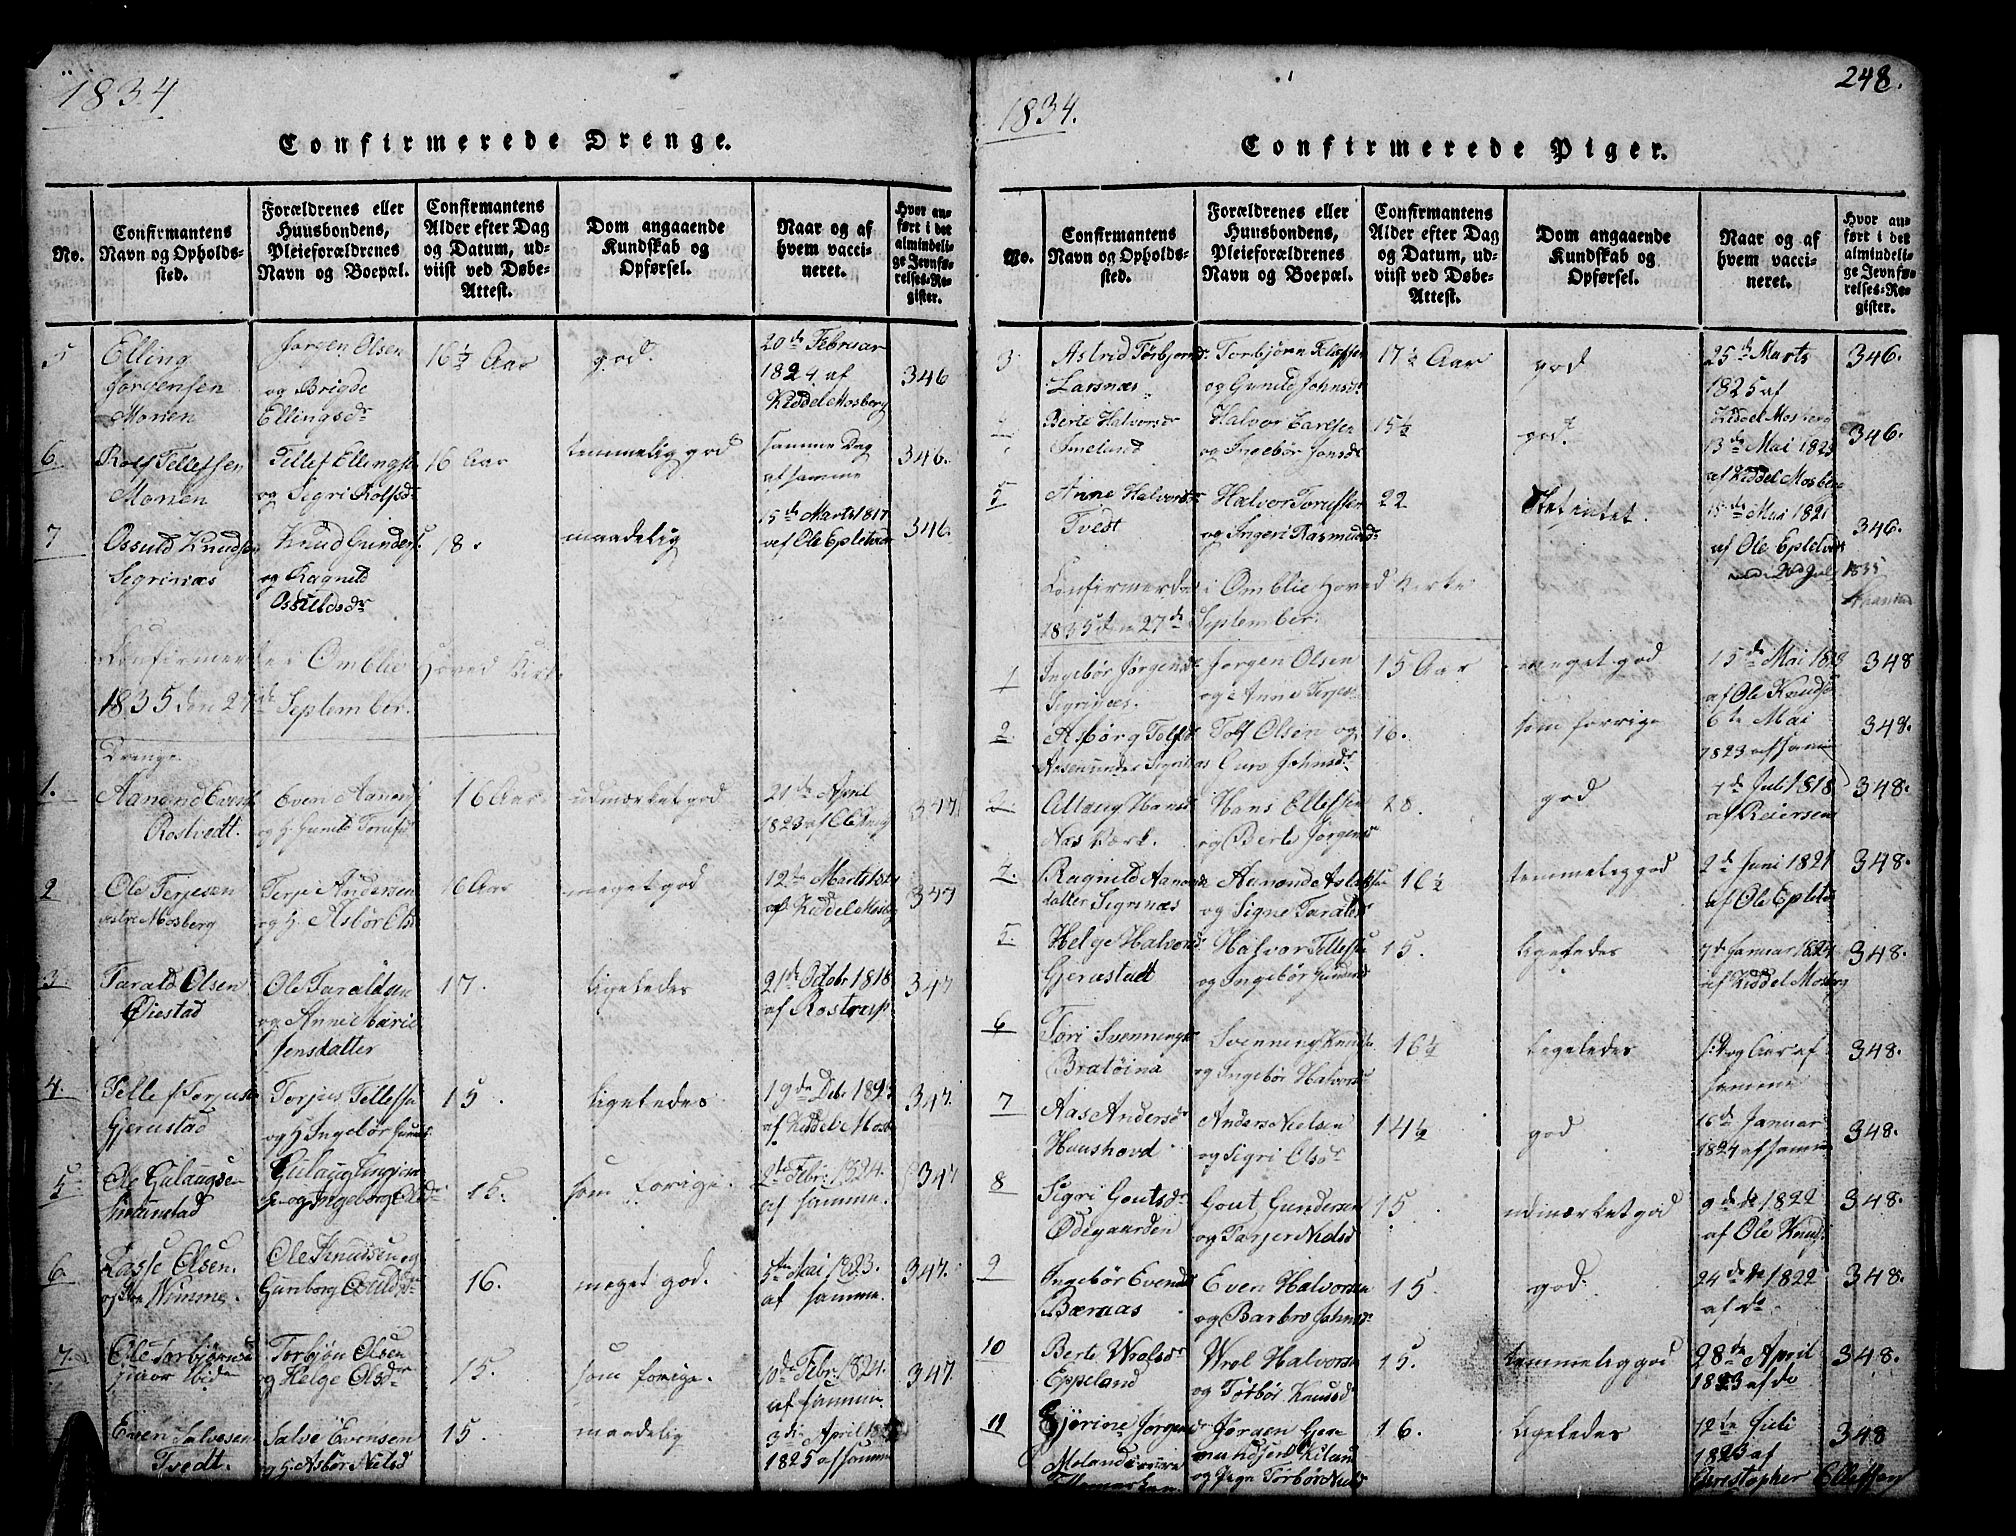 1834
Confirmerede Drenge.
No.
Confirmantens
Navn og Opholds-
sted.
Forældrenes eller
Huusbondens,
Pleieforældrenes
Navn og Boepæl.
Confirmantens
Alder efter Dag
og Datum, ud-
viist ved Døbe-
Attest.
Dom angaaende
Kundskab og
Opførsel.
Naar og af
hvem vacci-
neret.
Hvor an-
ført i det
almindeli-
ge Jevnfø-
relses-Re-
gister.
5
Elling
Jørgensen
Monen
Jørgen Olsen
og Brigde
Ellingsdr
16½ Aar
god.
20de Februar
1824 af
Kiddel Mosberg
346
6
Rolf Tellefsen
Monen
Tellef Ellingse
og Segri Rolfsdr
16 Aar
temmelig god
samme Dag
af samme
346.
7
Ossuld Knudsen
Segrinæs
Knud Gunders.
og Ragnild
Ossuldsdr
18.
maadelig
15de Marts 1817
af Ole Epletveit
346.
Confirmerte i Omblie Hoved Kirke
1835 den 27de September.
Drenge.
1.
Aanond Evens
Rostvedt.
Even Aanons
og H. Gunild Torufsd
16 Aar.
udmærket god
21de April
1823 af
347
2
Ole Terjesen
Mosberg
Terje Andersen
og H. Asbør Ols
16 Aar
meget god
12te Marts
af Kiddel Mosberg
347
3
Tarald Olsen
Øiestad
Ole Taraldsen
og Anne Marie
Jensdatter
17.
ligeledes
21de Octobr 1818
af Rostrup
347
4.
Tellef Torjuse
Gjerustad
Torjus Tellefse
og H. Ingebør Gunds.
15.
ligeledes
19de Debr
af Kiddel Mosb
347.
5
Ole Gulaugse
og Ingeborg Olsdr
15.
som forige.
2de Febr: 1824.
af samme.
347
6
Lasse Olsen.
Wimme.
Ole Knudsen og
Gunborg
16.
meget god.
5te Mai 1823.
af samme.
347.
7
Ole Torbjørns
Torbjøn Olsen
og Helge Olsdr
15.
som forige.
10de Febr: 1824.
af samme.
347.
Even Salvesen
Tvedt.
Salve Evensen
og H. Asbør Nielsd
15.
maadelig
3die April
1825 af samme
248.
1834.
Confirmerede Piger.
No.
Confirmantens
Navn og Opholds-
sted.
Forældrenes eller
Huusbondens,
Pleieforældrenes
Navn og Boepæl.
Confirmantens
Alder efter Dag
og Datum, ud-
viist ved Døbe-
Attest.
Dom angaaende
Kundskab og
Opførsel.
Naar og af
hvem vacci-
neret.
Hvor an-
ført i det
almindeli-
ge Jevnfø-
relses-Re-
gister.
3
Astrid Torbjørnsdr
Larsnæs
Torbjørn Olefsen
og Gunild Johnsdr
17½ Aar
god
25de Marts
1825 af
Kiddel Mosberg
346.
4
Berte Halvorsdr
Imelund
Halvor
og Ingebør Jonsdr
15½
god.
13de Mai 1823
af Kiddel Mosberg
346.
5
Anne Halvorsdr
Tvedt
Halvor Torufsen
og Ingeri Rasmusdr
22
15de Mai 1821
af Ole Epletveit
346.
1835
Confirmerte i Omblie Hoved Kirke
1835 den 27de September.
1
Ingebør Jørgensdr
Segrinæs.
Jørgen Olsen
og Anne Terjes
15 Aar
meget god
15de Mai
af Ole Knudse
348
2.
Asbørg Tolfsd
Segrinæs
Tolf Olsen og
Guro Johnsdr
16.
som forrige
6te Mai
1823 af samme
348.
3.
Allaug Hansd
Næs Værk.
Hans Ellefsen
og Berte Jørgensdr
28.
god
4de Juli 1818
af Reiersen
348.
4.
Ragnild Aanons
datter Segrinæs
Aanond Aslakse
og Signe Taralds
16½
temmelig god
2de Juni 1821
af Ole Eplet
348.
5.
Helge Halvorsdr
Gjerustadt
Halvor Tellefse
og Ingebør Gundersd
15.
ligeledes
7de Januar 1824
af Kiddel Mosberg
348.
6
Tori Svennings
Bratøina
Svenning Knuds
og Ingebør Halvorsd
16½
ligeledes
s: D og Aar af
samme
348.
7
Aas Andersdr
Huushovd
Anders Nielsen
og Sigri Olsdr
14½
god
16de Januar
1824 af samme
348.
8
Sigri Goutsdr
Ødegaarden
Gout Gundersen
og Tarjer Nielsd
15
udmærket god
9de do 1822
af Ole Knuds
348.
9
Ingebør Evensdr
Bæraas
Even Halvorsen
og Barbro Johnsd
15.
god.
24de do 1822
af do
348.
10
Berte Wrolsdr
Eppeland
Wrol Halvorsen
og Torbør Knudsd
15.
temmelig god
28de April
1823 af do
348.
11
Gjørine Jørgensdr
Jørgen
og Torbør Nielsd
16.
ligeledes
12te Juli
1823 af
Christopher Ellefsen
348